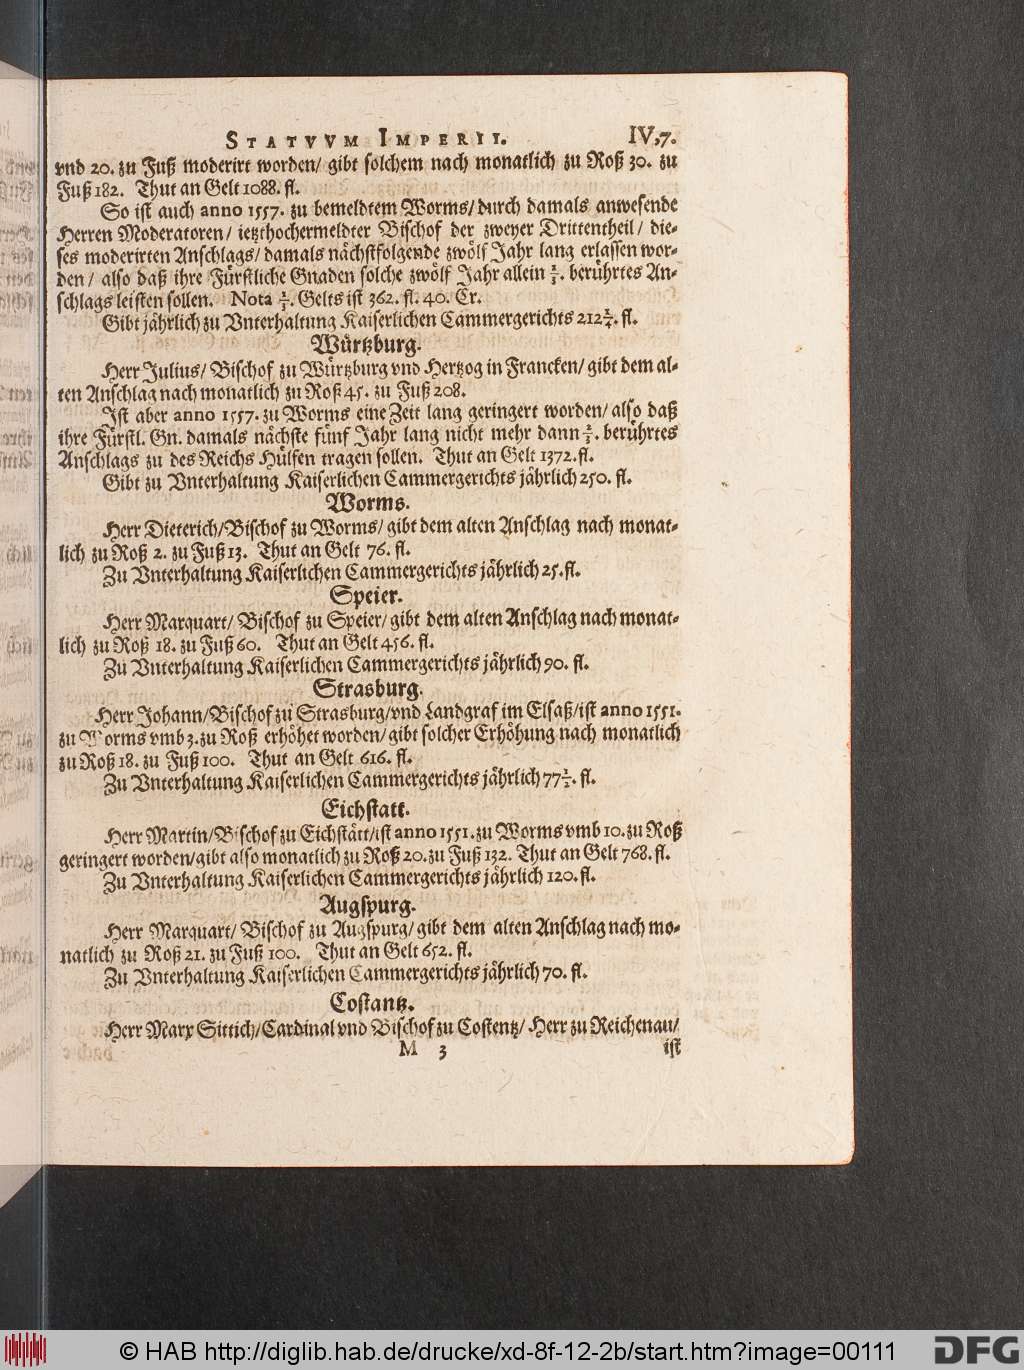 STATVVM IMPERII. IV,7.
vnd 20. zu Fuß moderirt worden/ gibt solchem nach monatlich zu Roß 30. zu
Fuß 182. Thut an Gelt 1088. fl.
So ist auch anno 1557. zu bemeldtem Worms/ durch damals anwesende
Herren Moderatoren/ ietzthochermeldter Bischof der zweyer Drittentheil/ die-
ses moderirten Anschlags/ damals nächstfolgende zwölf Jahr lang erlassen wor-
den/ also daß ihre Fürstliche Gnaden solche zwölf Jahr allein berührtes An-
schlags leisten sollen. Nota Gelts ist 362. fl. 40. Cr.
Gibt jährlich zu Vnterhaltung Kaiserlichen Cammergerichts 212 fl.
Würtzburg.
Herr Julius/ Bischof zu Würtzburg vnd Hertzog in Francken/ gibt dem al-
ten Anschlag nach monatlich zu Roß 45. zu Fuß 208.
Ist aber anno 1557. zu Worms eine Zeit lang geringert worden/ also daß
ihre Fürstl. Gn. damals nächste fünf Jahr lang nicht mehr dann berührtes
Anschlags zu des Reichs Hülfen tragen sollen. Thut an Gelt 1372. fl.
Gibt zu Vnterhaltung Kaiserlichen Cammergerichts jährlich 250. fl.
Worms.
Herr Dieterich/ Bischof zu Worms/ gibt dem alten Anschlag nach monat-
lich zu Roß 2. zu Fuß 13. Thut an Gelt 76. fl.
Zu Vnterhaltung Kaiserlichen Cammergerichts jährlich 25. fl.
Speier.
Herr Marquart/ Bischof zu Speier/ gibt dem alten Anschlag nach monat-
lich zu Roß 18. zu Fuß 60. Thut an Gelt 456. fl.
Zu Vnterhaltung Kaiserlichen Cammergerichts jährlich 90. fl.
Strasburg.
Herr Johann/ Bischof zu Strasburg/ vnd Landgraf im Elsaß/ ist anno 1551.
zu Worms vmb 3. zu Roß erhöhet worden/ gibt solcher Erhöhung nach monatlich
zu Roß 18. zu Fuß 100. Thut an Gelt 616. fl.
Zu Vnterhaltung Kaiserlichen Cammergerichts jährlich 77 ½. fl.
Eichstatt.
Herr Martin/ Bischof zu Eichstätt/ ist anno 1551. zu Worms vmb 10. zu Roß
geringert worden/ gibt also monatlich zu Roß 20. zu Fuß 132. Thut an Gelt 768. fl.
Zu Vnterhaltung Kaiserlichen Cammergerichts jährlich 120. fl.
Augspurg.
Herr Marquart/ Bischof zu Augspurg/ gibt dem alten Anschlag nach mo-
natlich zu Roß 21. zu Fuß 100. Thut an Gelt 652. fl.
Zu Vnterhaltung Kaiserlichen Cammergerichts jährlich 70. fl.
Costantz.
Herr Marx Sittich/ Cardinal vnd Bischof zu Costentz/ Herr zu Reichenau/
M 3 ist
© HAB http://diglib.hab.de/drucke/xd-8f-12-2b/start.htm?image=00111
DFG